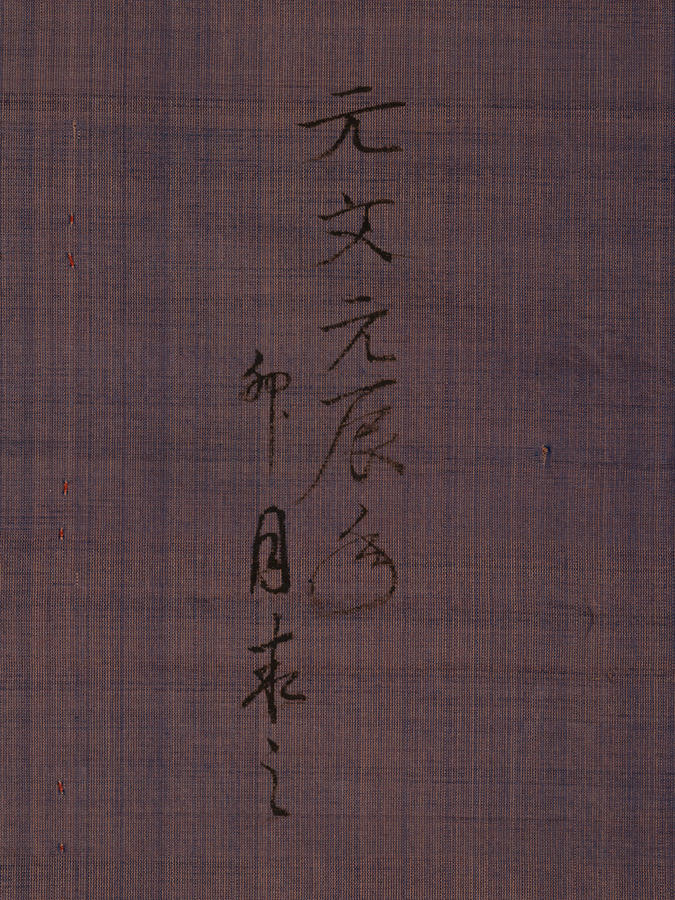 元文元辰年
卯月之